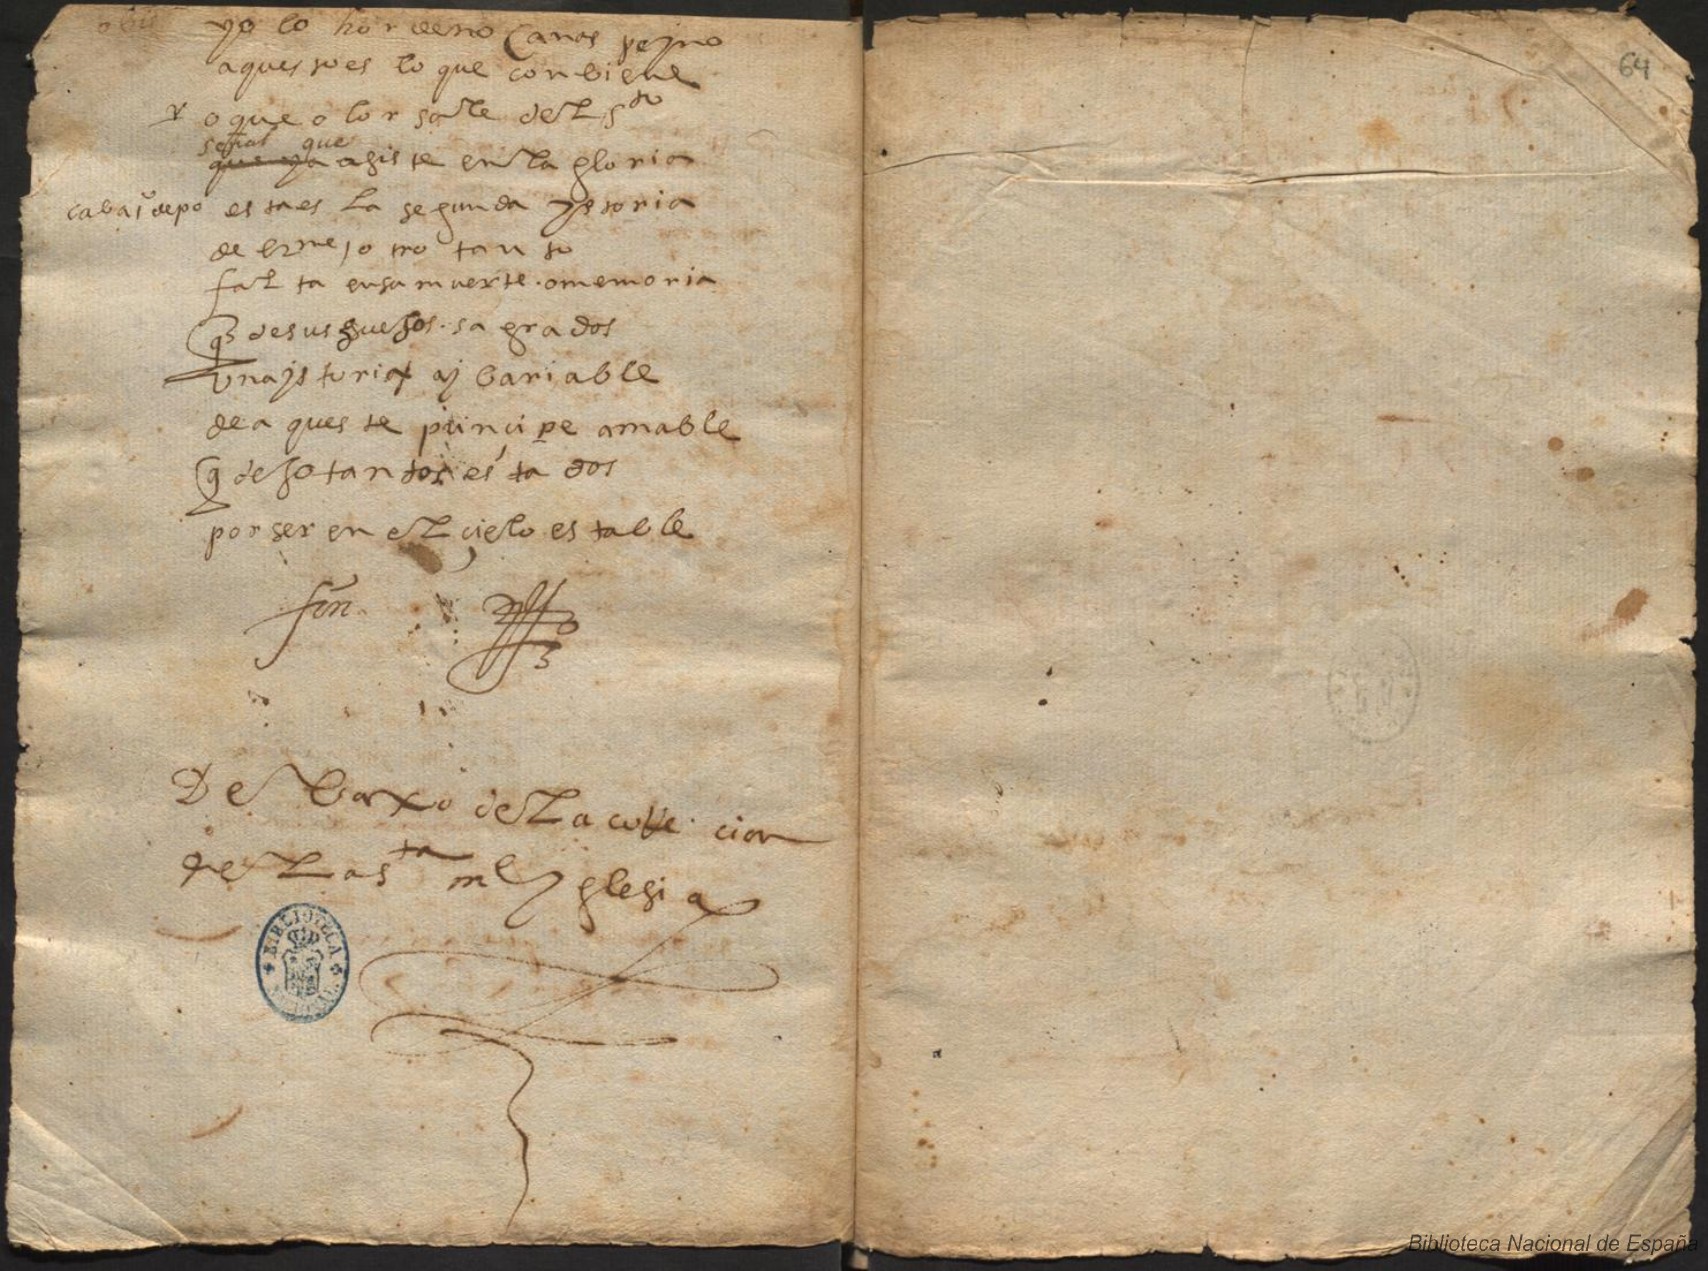 obis yo lo hordeno
aquesto es lo que conbiene
r o que olor sale del sto
señal que
que ya asiste en la gloria
cabaiº de po esta es la segunda ystoria
de ermejo tro tanto
falta en sa muerte o memoria
q de sus guesos sagrados
una ystoria ay bariable
de aqueste principe amable
q deso tantos estados
por ser en el cielo estable
fin
Debaxo de la cole cion
de la sta me yglesia
BIBLIOTECA NACIONAL
64
Biblioteca Nacional de España